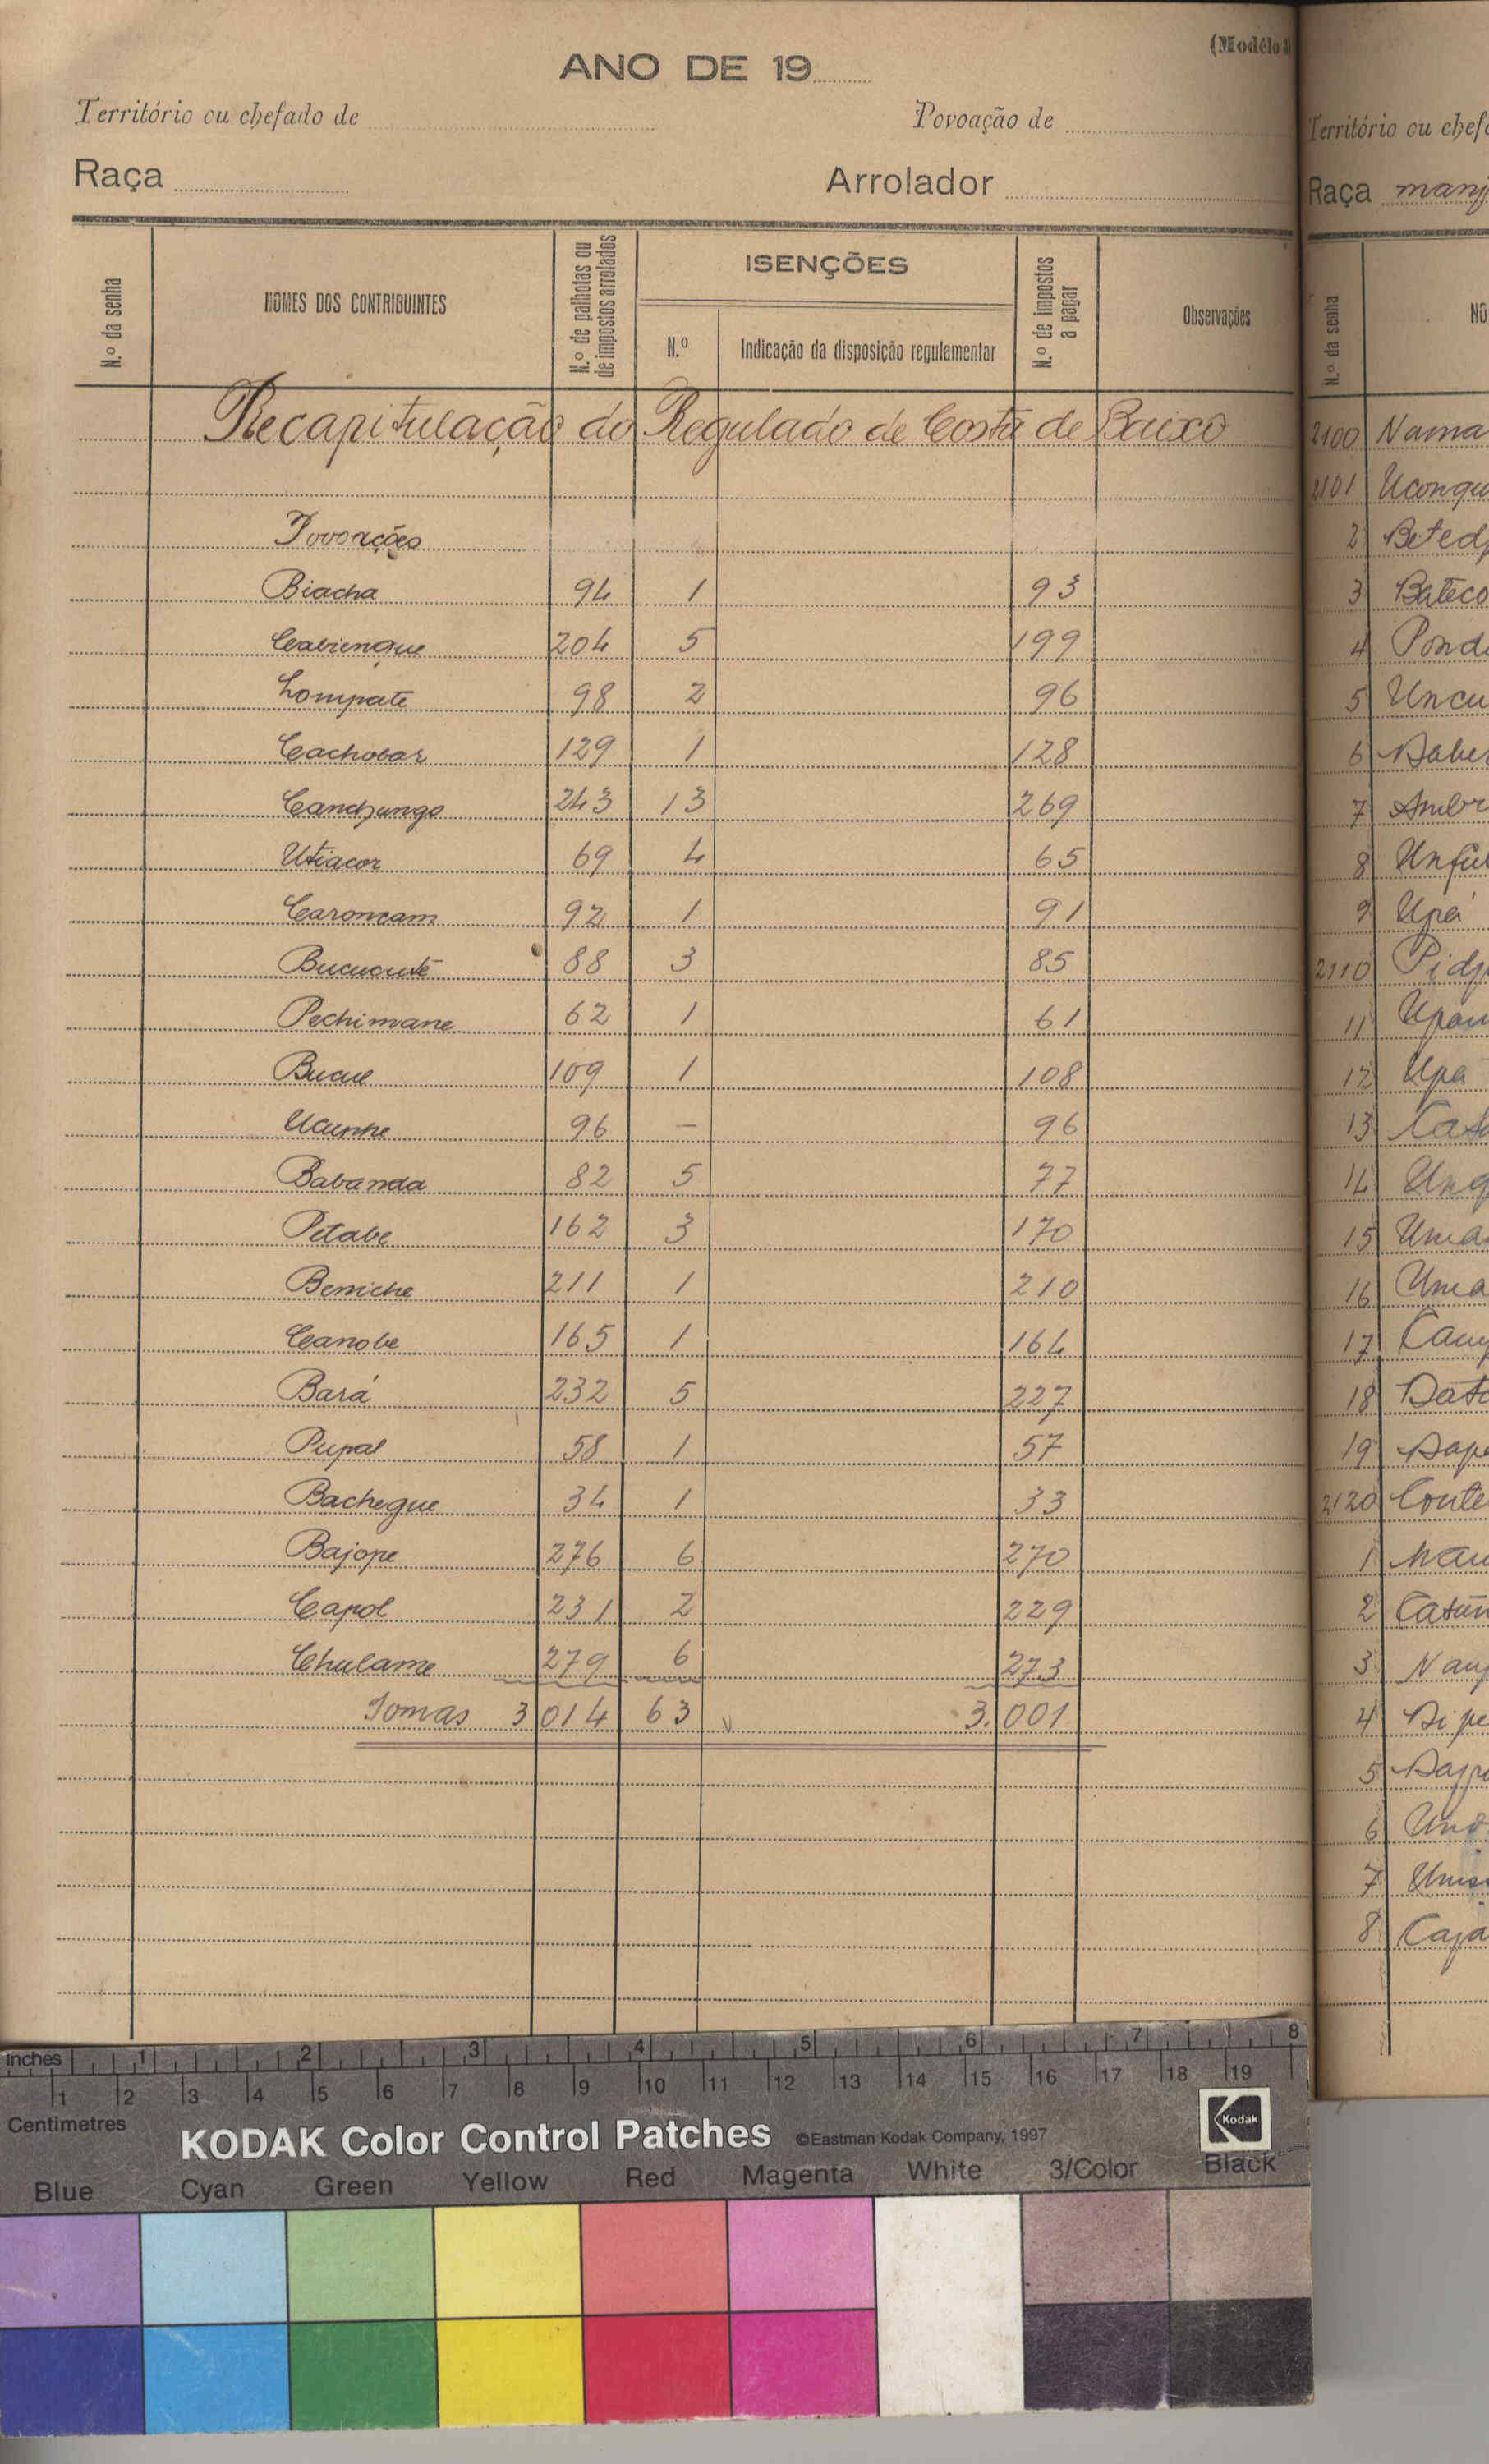 (Modêlo
ANO DE 19
Território ou chefado de
Povoação de
Raça
Arrolador
N.º da senha
NOMES DOS CONTRIBUINTES
N.º de palhotas ou de impostos arrolados
ISENÇÕES
N.º
Indicação da disposição regulamentar
N.º de impostos a pagar
Observações
Recapitulação do Regulado de Costa de Baixo
Povoações
Biacha 94 1 93
Cabienque 204 5 199
Lompate 98 2 96
Cachobar 129 1 128
Canchungo 243 13 269
Utiacor 69 4 65
Caroncam 92 1 91
Bucucute 88 3 85
Pechimane 62 1 61
Bucul 109 1 108
Ucunhe 96 — 96
Babanda 82 5 77
Petabe 162 3 170
Beniche 211 1 210
Canobe 165 1 164
Bará 232 5 227
Pupal 58 1 57
Bachegue 34 1 33
Bajope 276 6 270
Capol 231 2 229
Chulame 279 6 273
Somas 3014 63 3.001
Território ou chef
Raça manj
N.º da senha
NO
2100 Nama
2101 Uconqu
2 Betedj
3 Bateco
4 Pond
5 Uncu
6 Babe
7 Ambr
8 Unfu
9 Upá
2110 Pidj
11 Upau
12 Upa
13 Cas
14 Ung
15 Uma
16 Uma
17 Cau
18 Dat
19 Dap
2120 Conte
1
2 Casun
3 Nau
4 Dipe
5
6 Und
7 Unis
8 Caja
inches 1 2 3 4 5 6 7 8
1 2 3 4 5 6 7 8 9 10 11 12 13 14 15 16 17 18 19
Centimetres
KODAK Color Control Patches ©Eastman Kodak Company, 1997
Kodak
Blue Cyan Green Yellow Red Magenta White 3/Color Black